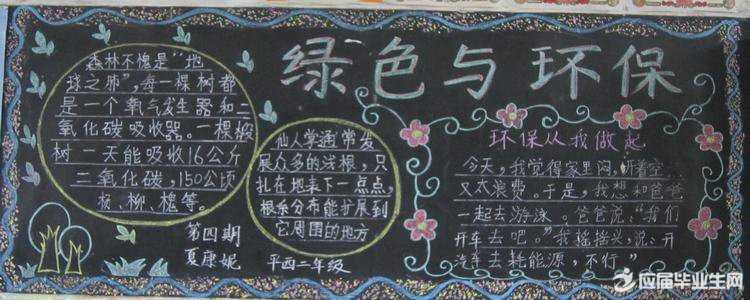 绿色与环保
森林不愧是“地
球之肺”，每一棵树都
是一个氧气发生器和二
氧化碳吸收器。一棵椴
树一天能吸收16公斤
二氧化碳，150公顷
杨、柳、槐等。
第四期
夏康妮
仙人掌通常发
展众多的浅根，只
扎在地表下一点点，
根系分布能扩展到
它周围的地方
平西二年级
环保从我做起
今天，我觉得家里闷，开着空
又太浪费。于是，我想和爸爸
一起去游泳。爸爸说：“我们
开车去吧。”我摇摇头，说：开
汽车去耗能源，不行”
应届毕业生网